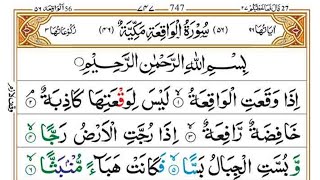 747 ٧٤٧
سُوْرَةُ الْوَاقِعَةِ مَكِّيَّةٌ
بِسْمِ اللّٰهِ الرَّحْمٰنِ الرَّحِيْمِ
اِذَا وَقَعَتِ الْوَاقِعَةُ ١ لَيْسَ لِوَقْعَتِهَا كَاذِبَةٌ ٢
خَافِضَةٌ رَّافِعَةٌ ٣ اِذَا رُجَّتِ الْاَرْضُ رَجًّا ٤
وَّبُسَّتِ الْجِبَالُ بَسًّا ٥ فَكَانَتْ هَبَآءً مُّنْۢبَثًّا ٦